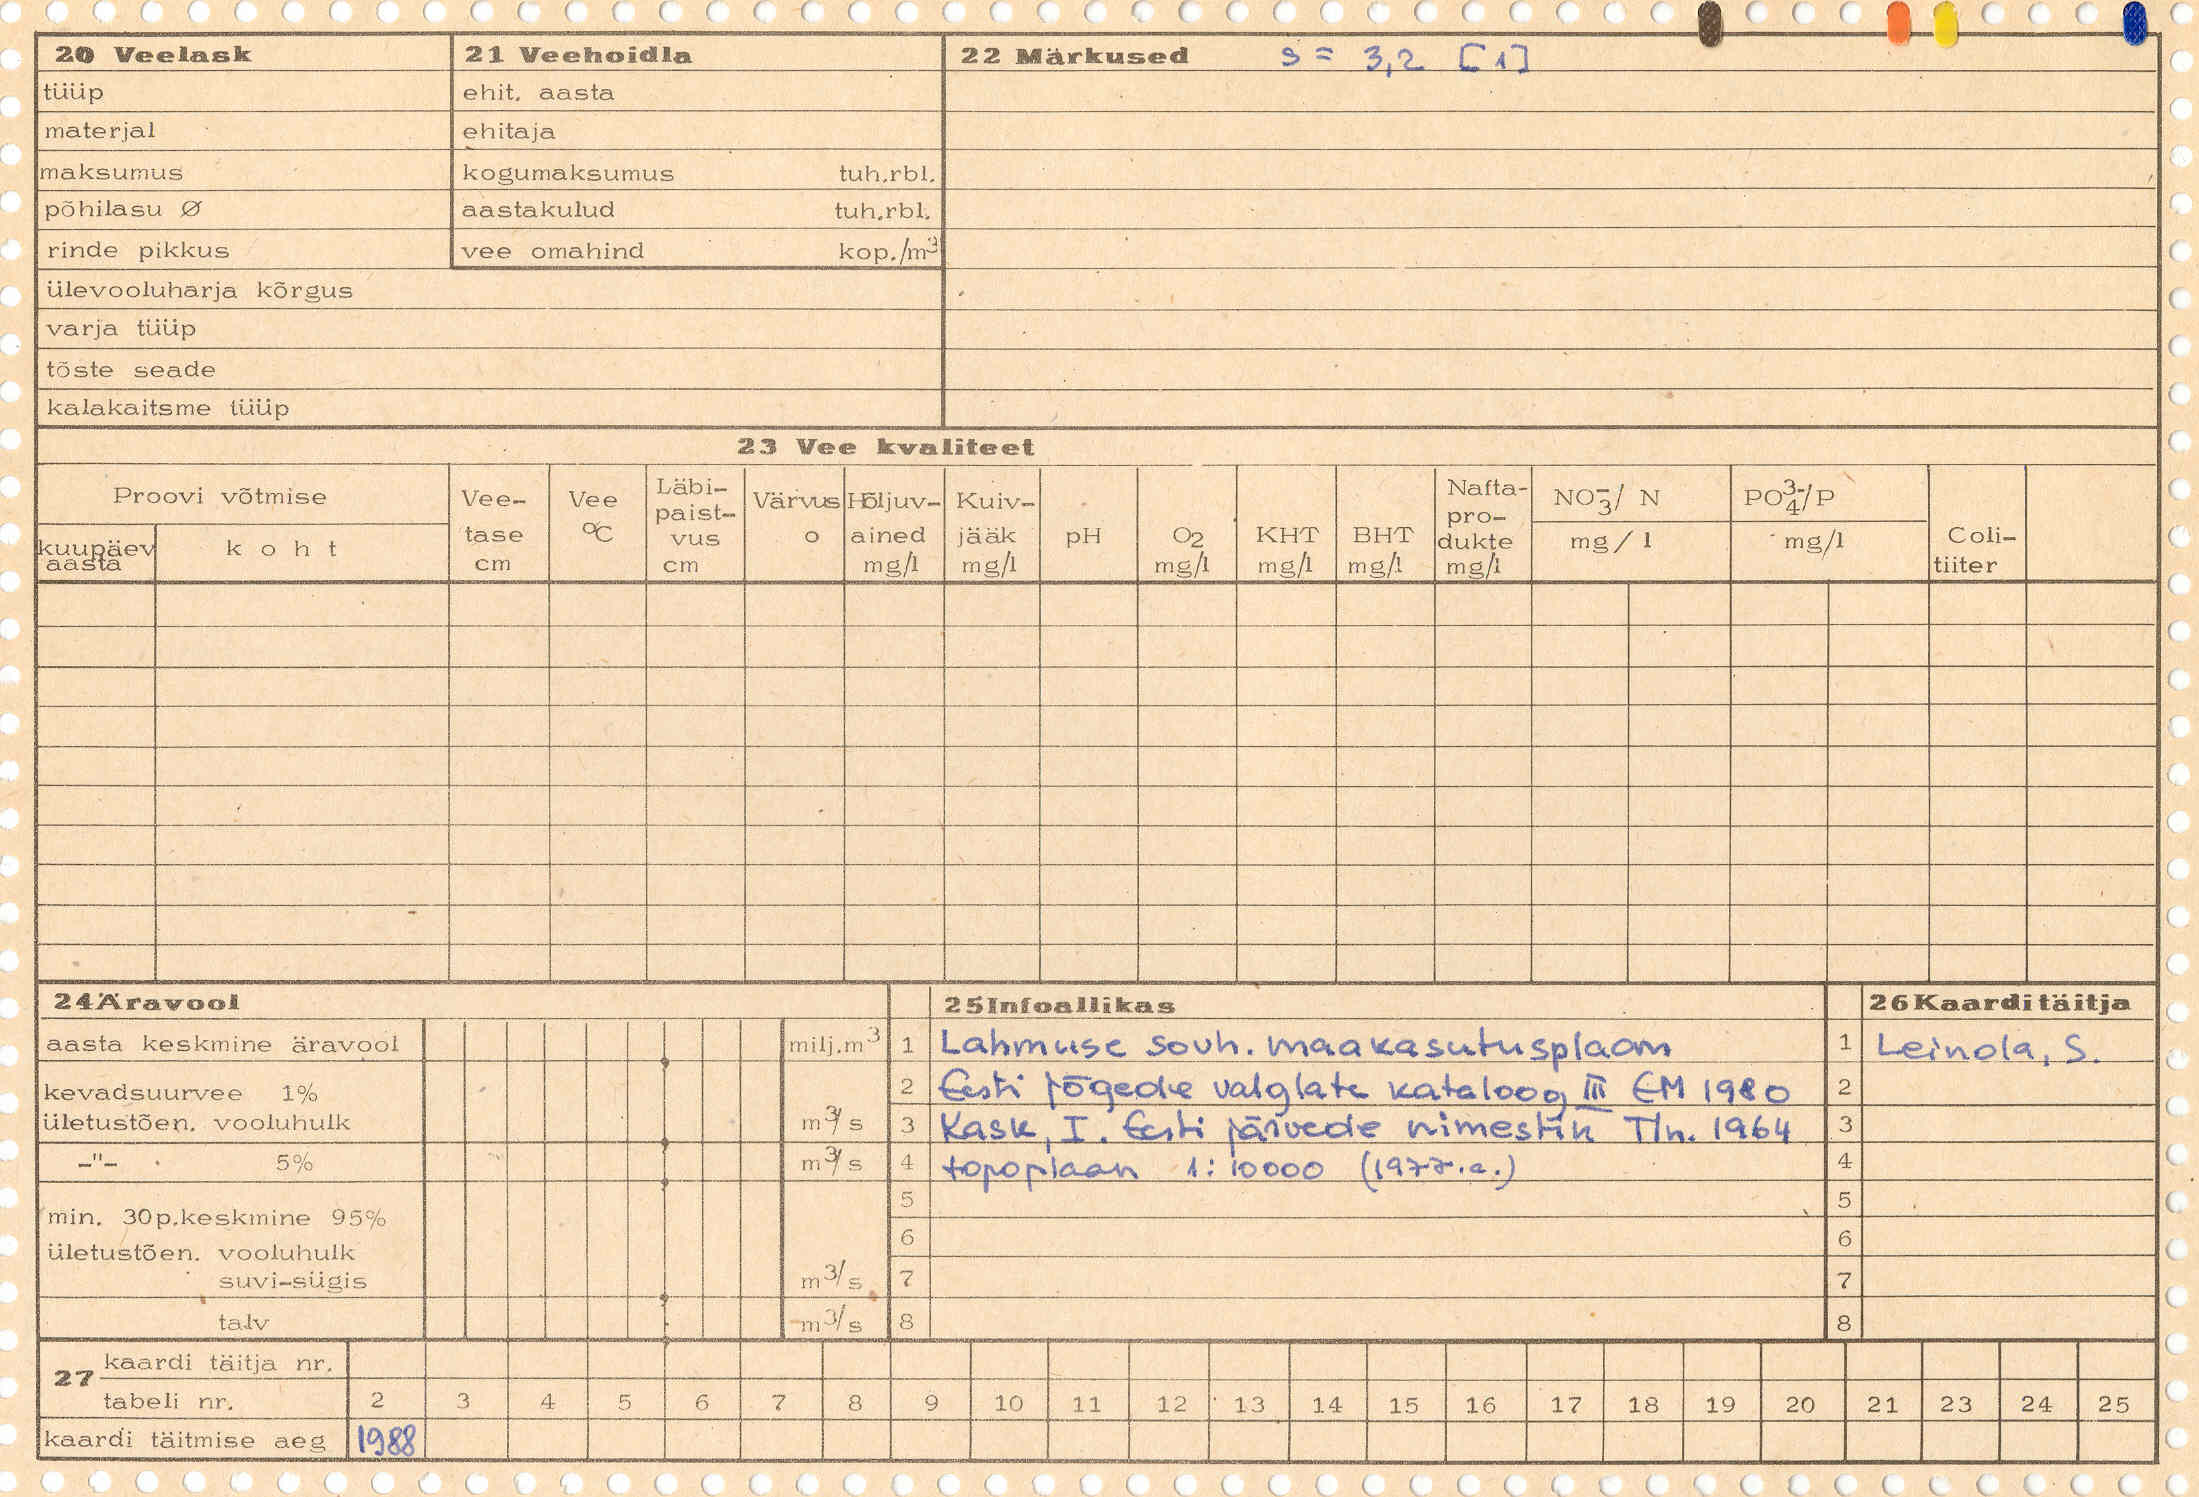 20 Veelask
tüüp
materjal
maksumus
põhilasu Ø
rinde pikkus
ülevooluharja kõrgus
varja tüüp
tõste seade
kalakaitsme tüüp
21 Veehoidla
ehit. aasta
ehitaja
kogumaksumus tuh.rbl.
aastakulud tuh.rbl.
vee omahind kop./m3
22 Märkused s = 3,2 [1]
23 Vee kvaliteet
Proovi võtmise
kuupäev
aasta
koht
Vee-
tase
cm
Vee
ºC
Läbi-
paist-
vus
cm
Värvus
o
Hõljuv-
ained
mg/l
Kuiv-
jääk
mg/l
pH
O2
mg/l
KHT
mg/l
BHT
mg/l
Nafta-
pro-
dukte
mg/l
NO3-/ N
mg/l
PO43-/P
mg/l
Coli-
tiiter
24 Äravool
aasta keskmine äravool milj.m3
kevadsuurvee 1%
ületustõen. vooluhulk m3/s
-"- 5% m3/s
min. 30p.keskmine 95%
ületustõen. vooluhulk
suvi-sügis m3/s
talv m3/s
25 Infoallikas
1 Lahmuse sovh. maakasutusplaan
2 Eesti jõgede valglate kataloog III EM 1980
3 Kask, I. Eesti järvede nimestik Tln. 1964
4 topoplaan 1:10000 (1977.a.)
5
6
7
8
26 Kaardi täitja
1 Leinola, S.
2
3
4
5
6
7
8
27 kaardi täitja nr.
tabeli nr. 2 3 4 5 6 7 8 9 10 11 12 13 14 15 16 17 18 19 20 21 23 24 25
kaardi täitmise aeg 1988